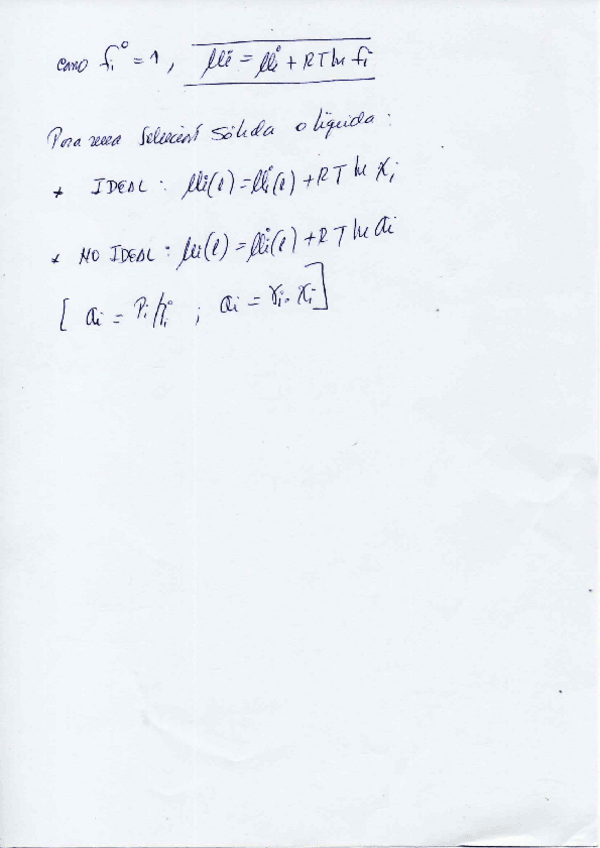 como fi° = 1, μi = μi° + RT ln fi
Para una solución sólida o líquida:
* IDEAL: μi(l) = μi°(l) + RT ln xi
* NO IDEAL: μi(l) = μi°(l) + RT ln ai
[ ai = Pi/Pi° ; ai = γi · xi ]